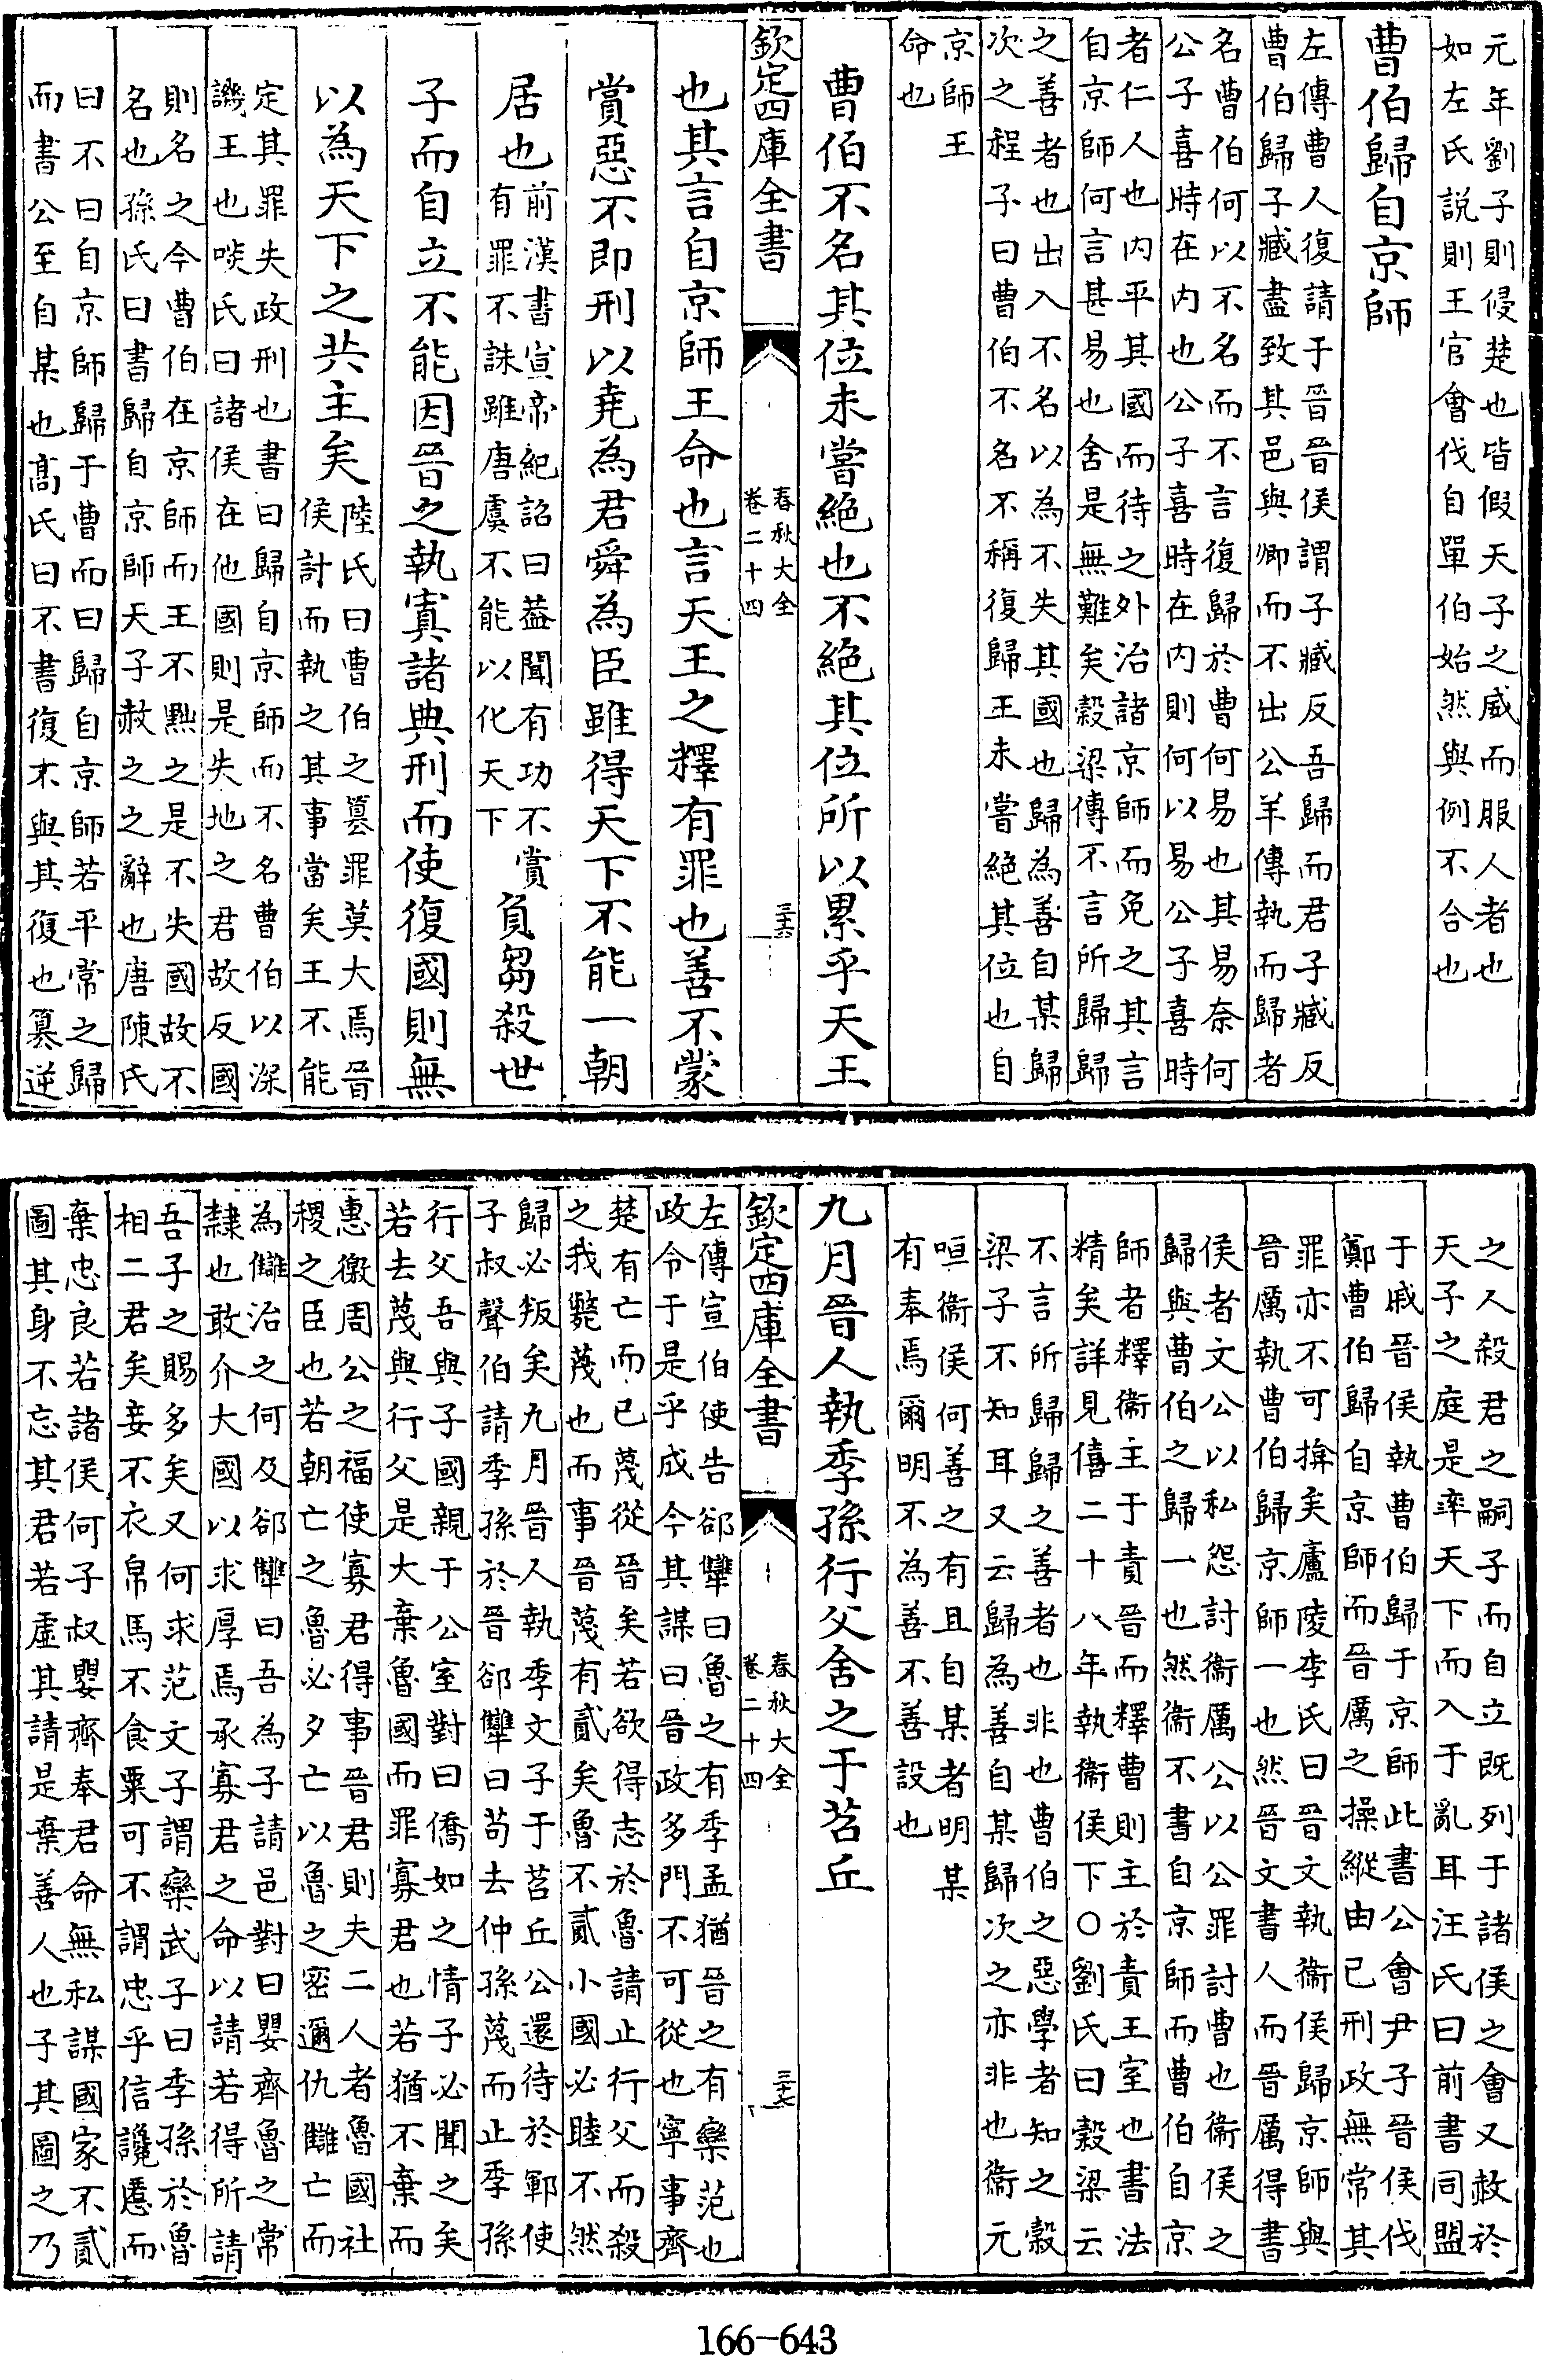 元年劉子則侵楚也皆假天子之威而服人者也
如左氏説則王官會伐自單伯始然與例不合也
曹伯歸自京師
左傳曹人復請于晉晉侯謂子臧反吾歸而君子臧反
曹伯歸子臧盡致其邑與卿而不出公羊傳執而歸者
名曹伯何以不名而不言復歸於曹何易也其易奈何
公子喜時在内也公子喜時在内則何以易公子喜時
者仁人也内平其國而待之外治諸京師而免之其言
自京師何言甚易也舍是無難矣榖梁傳不言所歸歸
之善者也出入不名以為不失其國也歸為善自某歸
次之程子曰曹伯不名不稱復歸王未嘗絶其位也自
京師王
命也
曹伯不名其位未嘗絶也不絶其位所以累乎天王
欽定四庫全書
春秋大全
卷二十四
三六
也其言自京師王命也言天王之釋有罪也善不蒙
賞惡不即刑以堯為君舜為臣雖得天下不能一朝
居也
前漢書宣帝紀詔曰葢聞有功不賞
有罪不誅雖唐虞不能以化天下
負芻殺世
子而自立不能因晉之執寘諸典刑而使復國則無
以為天下之共主矣
陸氏曰曹伯之簒罪莫大焉晉
侯討而執之其事當矣王不能
定其罪失政刑也書曰歸自京師而不名曹伯以深
譏王也啖氏曰諸侯在他國則是失地之君故反國
則名之今曹伯在京師而王不黜之是不失國故不
名也孫氏曰書歸自京師天子赦之之辭也唐陳氏
曰不曰自京師歸于曹而曰歸自京師若平常之歸
而書公至自某也髙氏曰不書復不與其復也簒逆
之人殺君之嗣子而自立既列于諸侯之會又赦於
天子之庭是率天下而入于亂耳汪氏曰前書同盟
于戚晉侯執曹伯歸于京師此書公會尹子晉侯伐
鄭曹伯歸自京師而晉厲之操縱由已刑政無常其
罪亦不可揜矣廬陵李氏曰晉文執衞侯歸京師與
晉厲執曹伯歸京師一也然晉文書人而晉厲得書
侯者文公以私怨討衞厲公以公罪討曹也衞侯之
歸與曹伯之歸一也然衞不書自京師而曹伯自京
師者釋衞主于責晉而釋曹則主於責王室也書法
精矣詳見僖二十八年執衞侯下○劉氏曰榖梁云
不言所歸歸之善者也非也曹伯之惡學者知之榖
梁子不知耳又云歸為善自某歸次之亦非也衞元
咺衞侯何善之有且自某者明某
有奉焉爾明不為善不善設也
九月晉人執季孫行父舍之于苕丘
欽定四庫全書
春秋大全
卷二十四
三七
左傳宣伯使告郤犫曰魯之有季孟猶晉之有欒范也
政令于是乎成今其謀曰晉政多門不可從也寧事齊
楚有亡而已蔑從晉矣若欲得志於魯請止行父而殺
之我斃蔑也而事晉蔑有貳矣魯不貳小國必睦不然
歸必叛矣九月晉人執季文子于苕丘公還待於鄆使
子叔聲伯請季孫於晉郤犫曰茍去仲孫蔑而止季孫
行父吾與子國親于公室對曰僑如之情子必聞之矣
若去蔑與行父是大棄魯國而罪寡君也若猶不棄而
惠徼周公之福使寡君得事晉君則夫二人者魯國社
稷之臣也若朝亡之魯必夕亡以魯之密邇仇讎亡而
為讎治之何及郤犫曰吾為子請邑對曰嬰齊魯之常
隸也敢介大國以求厚焉承寡君之命以請若得所請
吾子之賜多矣又何求范文子謂欒武子曰季孫於魯
相二君矣妾不衣帛馬不食粟可不謂忠乎信讒慝而
棄忠良若諸侯何子叔嬰齊奉君命無私謀國家不貳
圖其身不忘其君若虛其請是棄善人也子其圖之乃
166-643